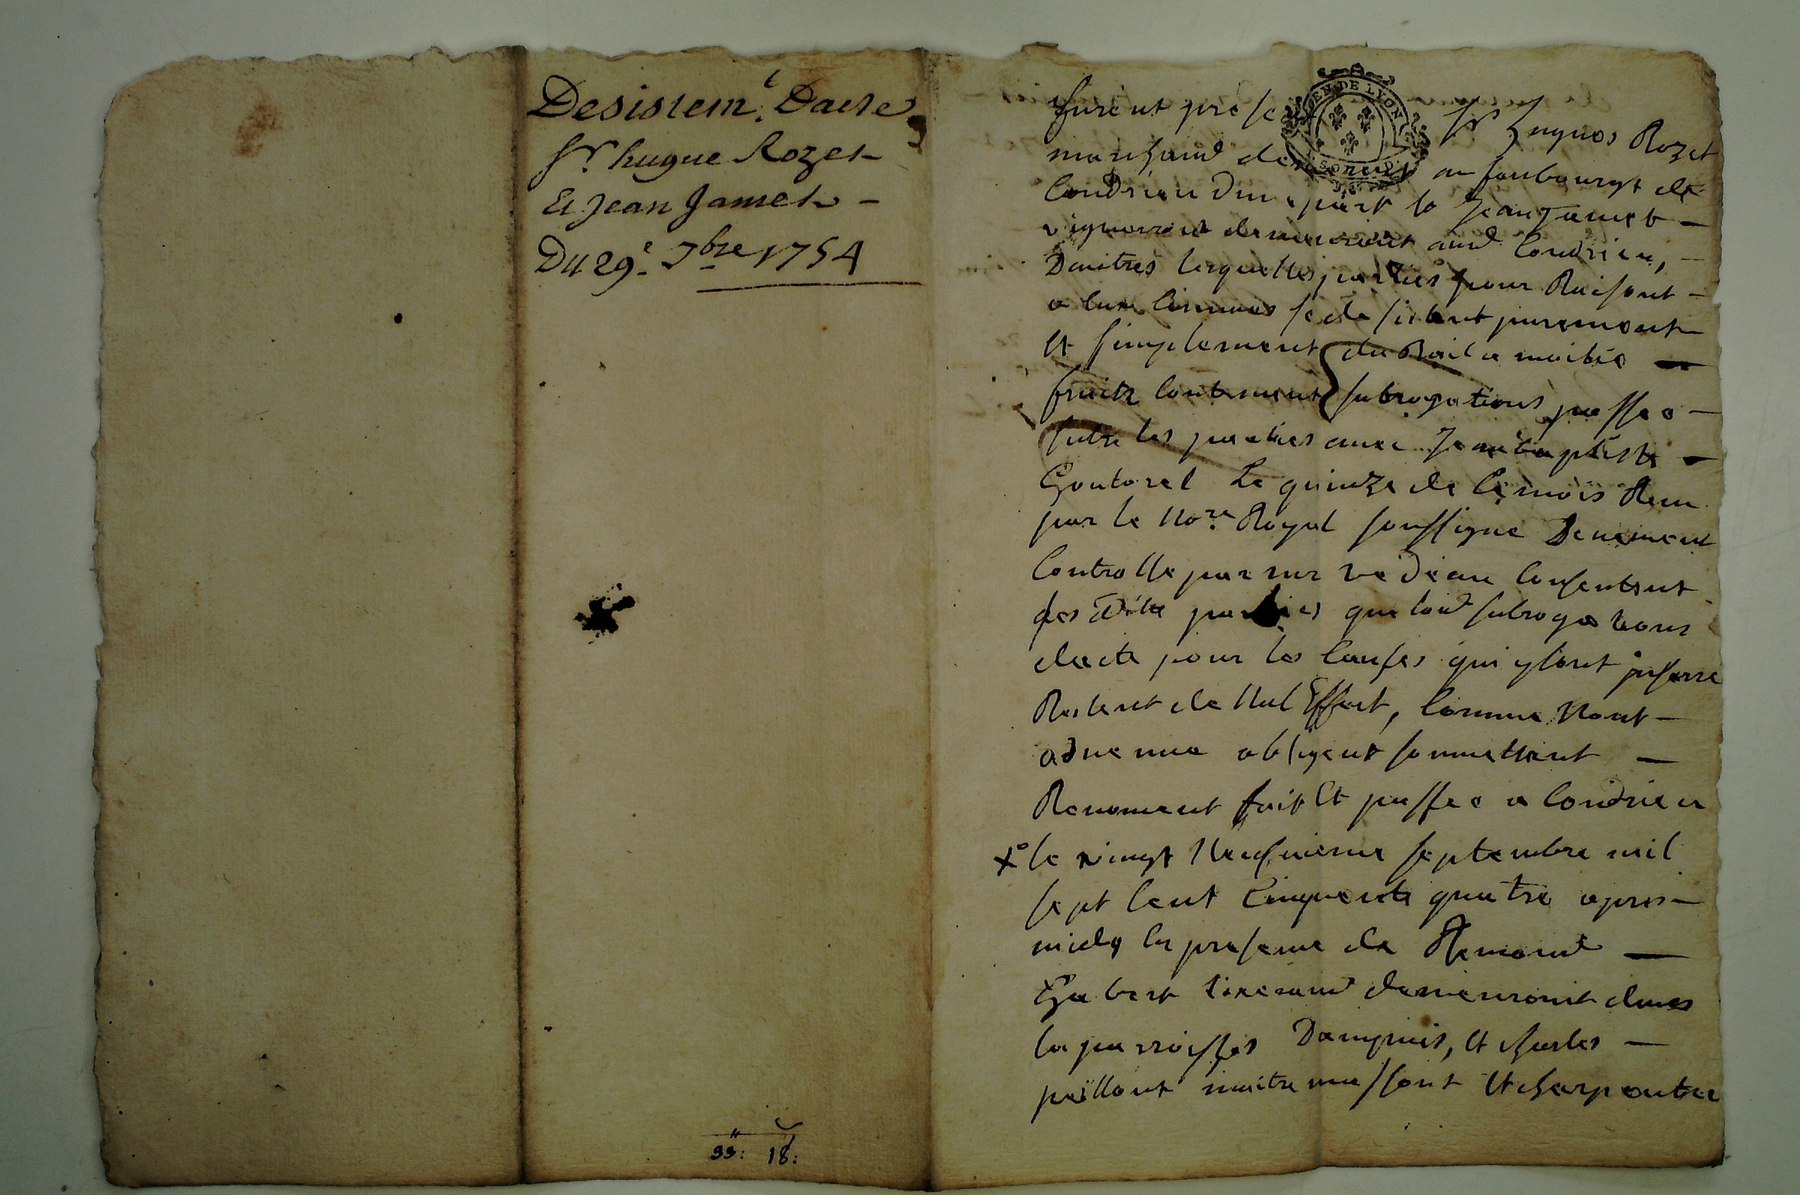 Desistem.t Dacte
Sr. hugue Rozet
Et Jean Jamet
Du 29e. 7bre 1754
33: 18:
GEN DE LYON
furent presents Sr hugues Rozet
marchand demeurant au faubourgt de
Condrieu Dune part & Jean Jamet
vigneront demeurant aud Condrieu,
Dautres lesquelles parties pour Raisont
a eux Connues se desistent purement
Et simplement du Bail a moitié
fruits Contenent subrogations passée
Entre les parties avec Jean baptiste
le quinze de ce mois Reçu
par le Nore. Royal soussigne Deuement
Controlle par mr Consentent
les dite parties que lad subrogations
dacte pour les Causes qui y sont inserre
Restent de Nul Effect, Comme Nont
advenue obligent soumettent
Renoncent fait Et passée a Condrieu
le vingt Neufvieme septembre mil
sept Cent Cinquente quatre apres
midy En presence de
demeurant dans
la parroisses Dampuis, Et charles
maitre massont Et charpentier